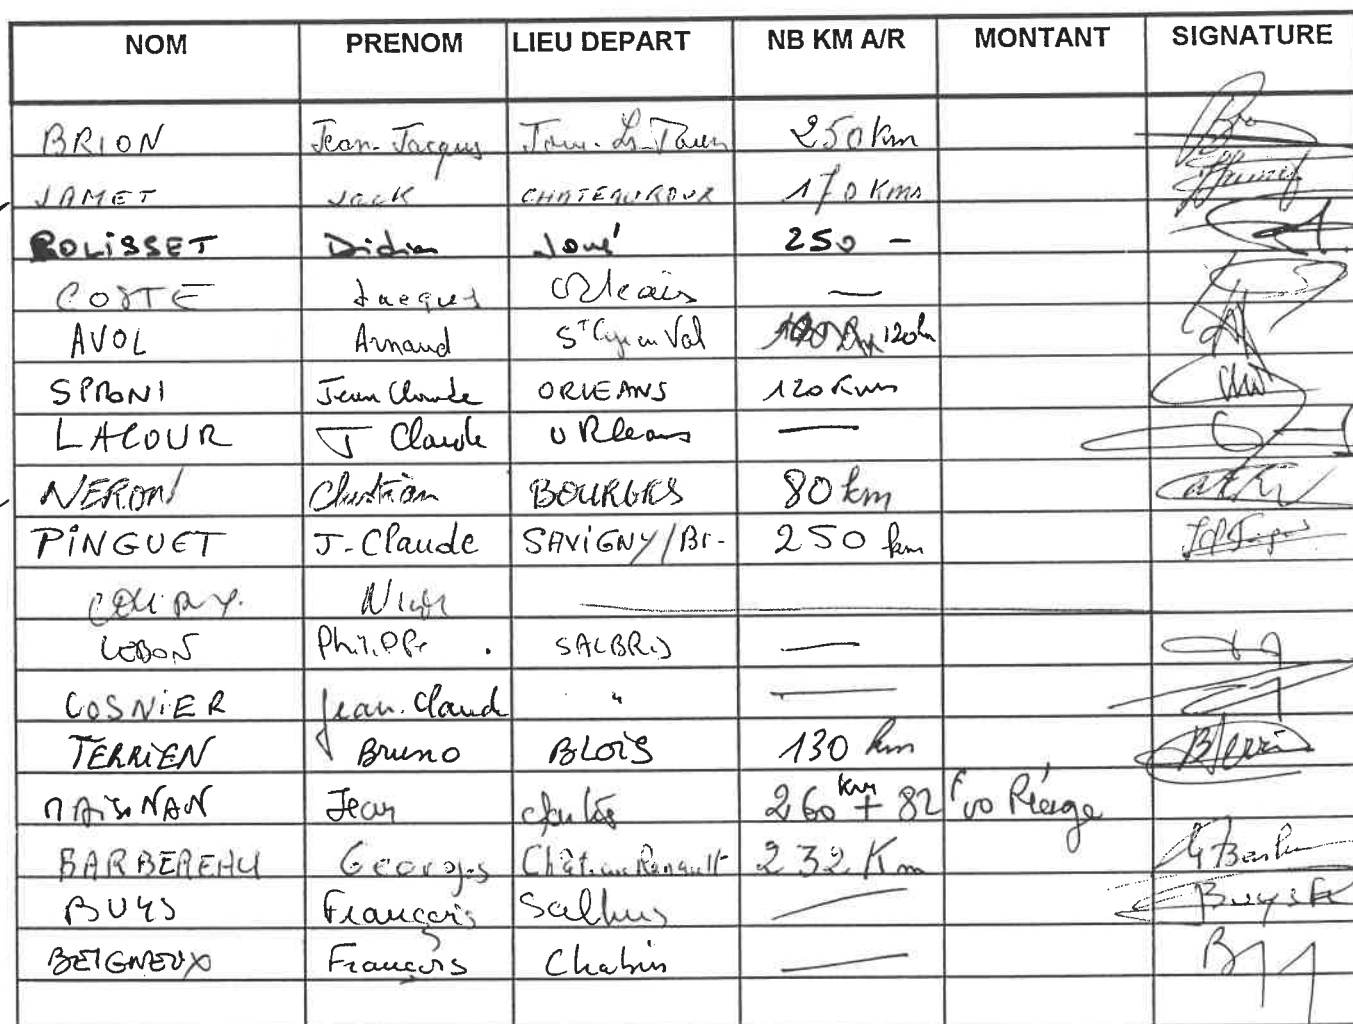 NOM PRENOM LIEU DEPART NB KM A/R MONTANT SIGNATURE
BRION Jean-Jacques 250 km
JAMET Jack CHATEAUROUX 170 Kms
ROLISSET Didier Joué 250 -
COSTE Jacques Orléans —
AVOL Arnaud St Cyr en Val 120 km
Jean Claude ORLEANS 120 Kms
LACOUR J Claude ORleans —
NERONI Christian BOURGES 80 km
PINGUET J-Claude SAVIGNY/Br- 250 km
LEBON Philippe . SALBRIS —
COSNIER Jean-Claude " —
TERRIEN Bruno BLOIS 130 km BTerri
Jean 260 km + 82 Péage
BARBEREAU Georges Château Renault 232 Km
BUYS François Salbris —
BEIGNEUX François Chabris —